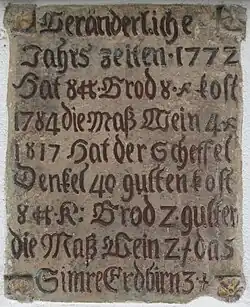 Veränderliche
Jahrs zeiten · 1772
Hat 8 ℔ Brod 8 · x kost
1784 die Maß Wein 4 x
1817 Hat der Scheffel
Denkel 40 gulten kost
8 ℔ K: Brod 2 · gulten
die Maß Wein 2 f das
Simre Erdbirn 3 f